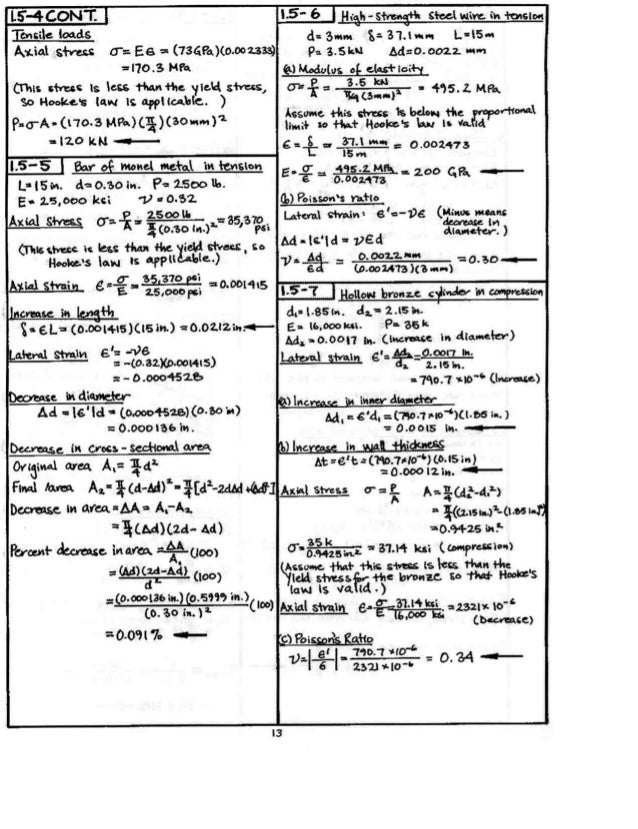 1.5-4 CONT.
Tensile loads
Axial stress σ = Eε = (73 GPa)(0.002333)
= 170.3 MPa
(This stress is less than the yield stress,
so Hooke's law is applicable. )
P = σA = (170.3 MPa)(π/4)(30 mm)²
= 120 kN ←
1.5-5 Bar of monel metal in tension
L = 15 in. d = 0.30 in. P = 2500 lb.
E = 25,000 ksi ν = 0.32
Axial Stress σ = P/A = 2500 lb / π/4 (0.30 in.)² = 35,370 psi
(This stress is less than the yield stress, so
Hooke's law is applicable.)
Axial strain ε = σ/E = 35,370 psi / 25,000 psi = 0.001415
Increase in length
δ = εL = (0.001415)(15 in.) = 0.0212 in. ←
Lateral strain ε' = -νε
= -(0.32)(0.001415)
= -0.0004528
Decrease in diameter
Δd = |ε'|d = (0.0004528)(0.30 in)
= 0.000136 in.
Decrease in cross-sectional area
Original area A₁ = π/4 d²
Final area A₂ = π/4 (d-Δd)² = π/4 [d²-2dΔd+(Δd)²]
Decrease in area = ΔA = A₁-A₂
= π/4 (Δd)(2d-Δd)
Percent decrease in area = ΔA/A₁ (100)
= (Δd)(2d-Δd) / d² (100)
= (0.000136 in.)(0.5999 in.) / (0.30 in.)² (100)
= 0.091% ←
1.5-6 High-strength steel wire in tension
d = 3mm δ = 37.1 mm L = 15m
P = 3.5 kN Δd = 0.0022 mm
(a) Modulus of elasticity
σ = P/A = 3.5 kN / π/4 (3mm)² = 495.2 MPa
Assume this stress is below the proportional
limit so that Hooke's law is valid
ε = δ/L = 37.1 mm / 15 m = 0.002473
E = σ/ε = 495.2 MPa / 0.002473 = 200 GPa ←
(b) Poisson's ratio
Lateral strain: ε' = -νε (Minus means
decrease in
diameter. )
Δd = |ε'|d = νεd
ν = Δd/εd = 0.0022 mm / (0.002473)(3 mm) = 0.30 ←
1.5-7 Hollow bronze cylinder in compression
d₁ = 1.85 in. d₂ = 2.15 in.
E = 16,000 ksi. P = 35 k
Δd₂ = 0.0017 in. (increase in diameter)
Lateral strain ε' = Δd₂/d₂ = 0.0017 in. / 2.15 in.
= 790.7 ×10⁻⁶ (Increase)
(a) Increase in inner diameter
Δd₁ = ε'd₁ = (790.7×10⁻⁶)(1.85 in. )
= 0.0015 in. ←
(b) Increase in wall thickness
Δt = ε't = (790.7×10⁻⁶)(0.15 in)
= 0.00012 in. ←
Axial stress σ = P/A A = π/4 (d₂²-d₁²)
= π/4 ((2.15 in.)²-(1.85 in.)²)
= 0.9425 in.²
σ = 35 k / 0.9425 in.² = 37.14 ksi (compression)
(Assume that this stress is less than the
yield stress for the bronze so that Hooke's
law is valid.)
Axial strain ε = σ/E = 37.14 ksi / 16,000 ksi = 2321×10⁻⁶
(Decrease)
(c) Poisson's Ratio
ν = |ε'/ε| = 790.7 ×10⁻⁶ / 2321 ×10⁻⁶ = 0.34 ←
13